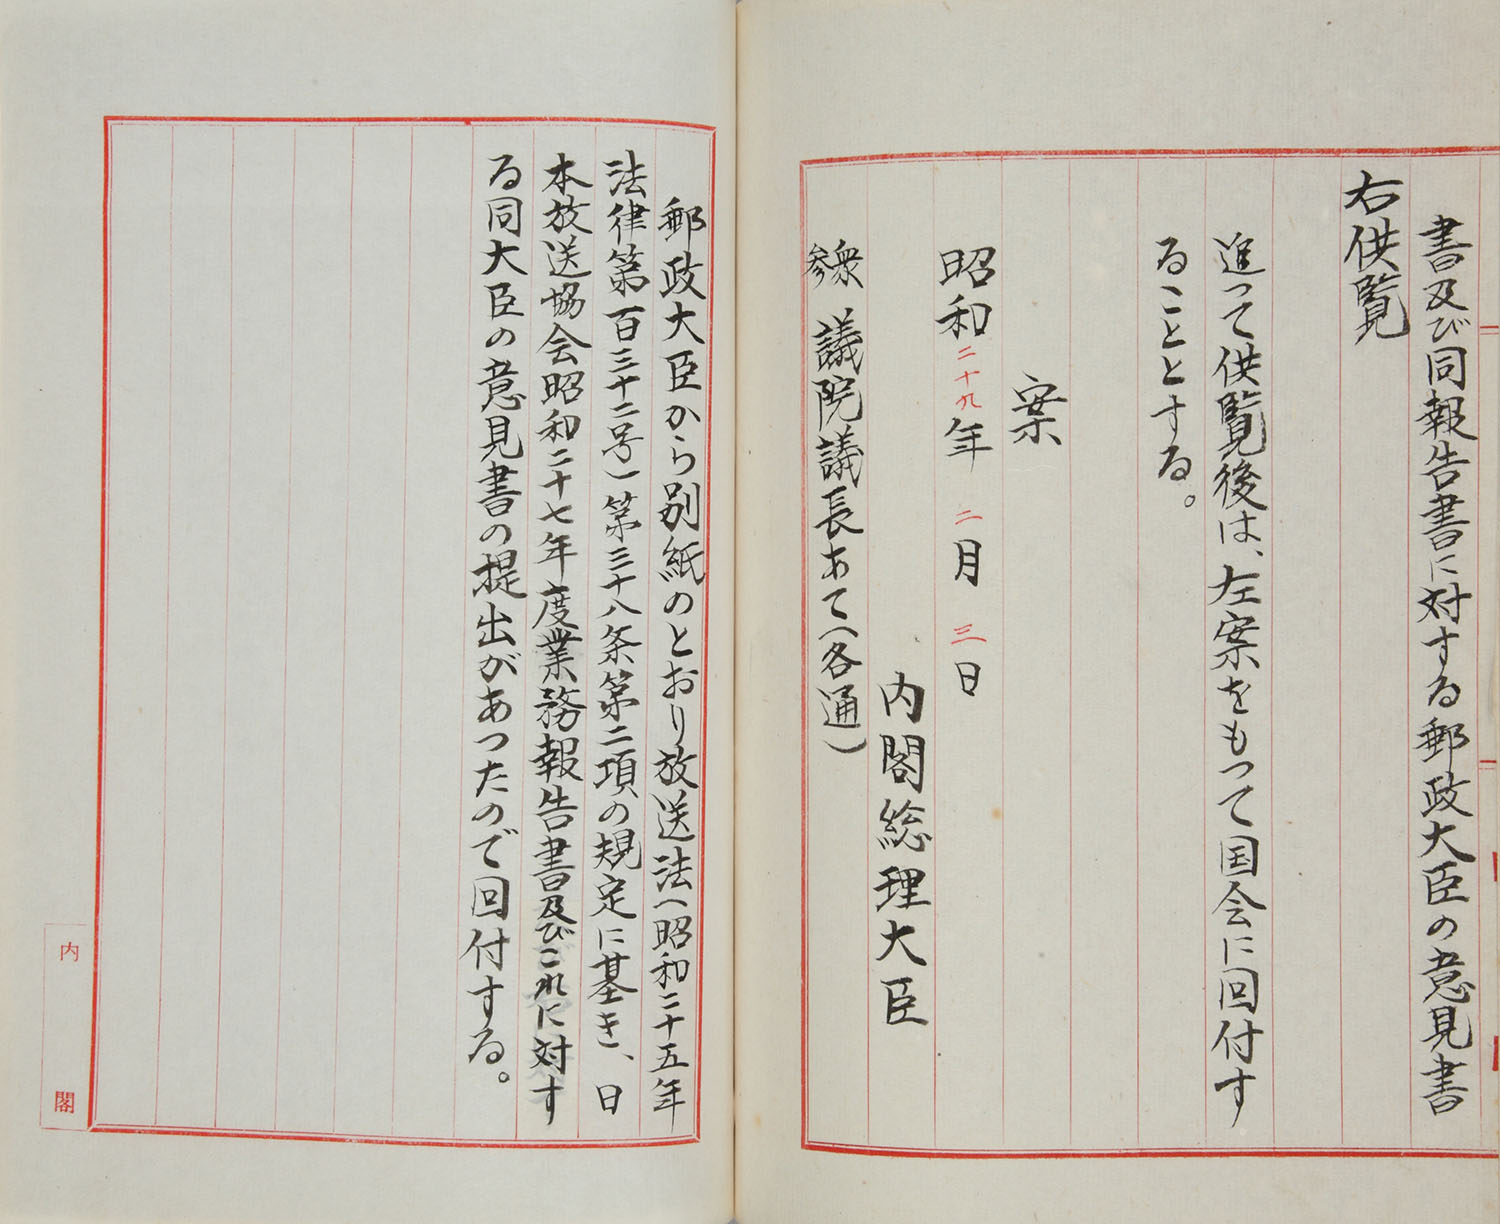 書及び同報告書に対する郵政大臣の意見書
右供覧
追って供覧後は、左案をもって国会に回付す
ることとする。
案
昭和二十九年二月三日
内閣総理大臣
衆
参
議院議長あて(各通)
郵政大臣から別紙のとおり放送法(昭和二十五年
法律第百三十二号)第三十八条第二項の規定に基き、日
本放送協会昭和二十七年度業務報告書及びこれに対す
る同大臣の意見書の提出があつたので回付する。
内閣